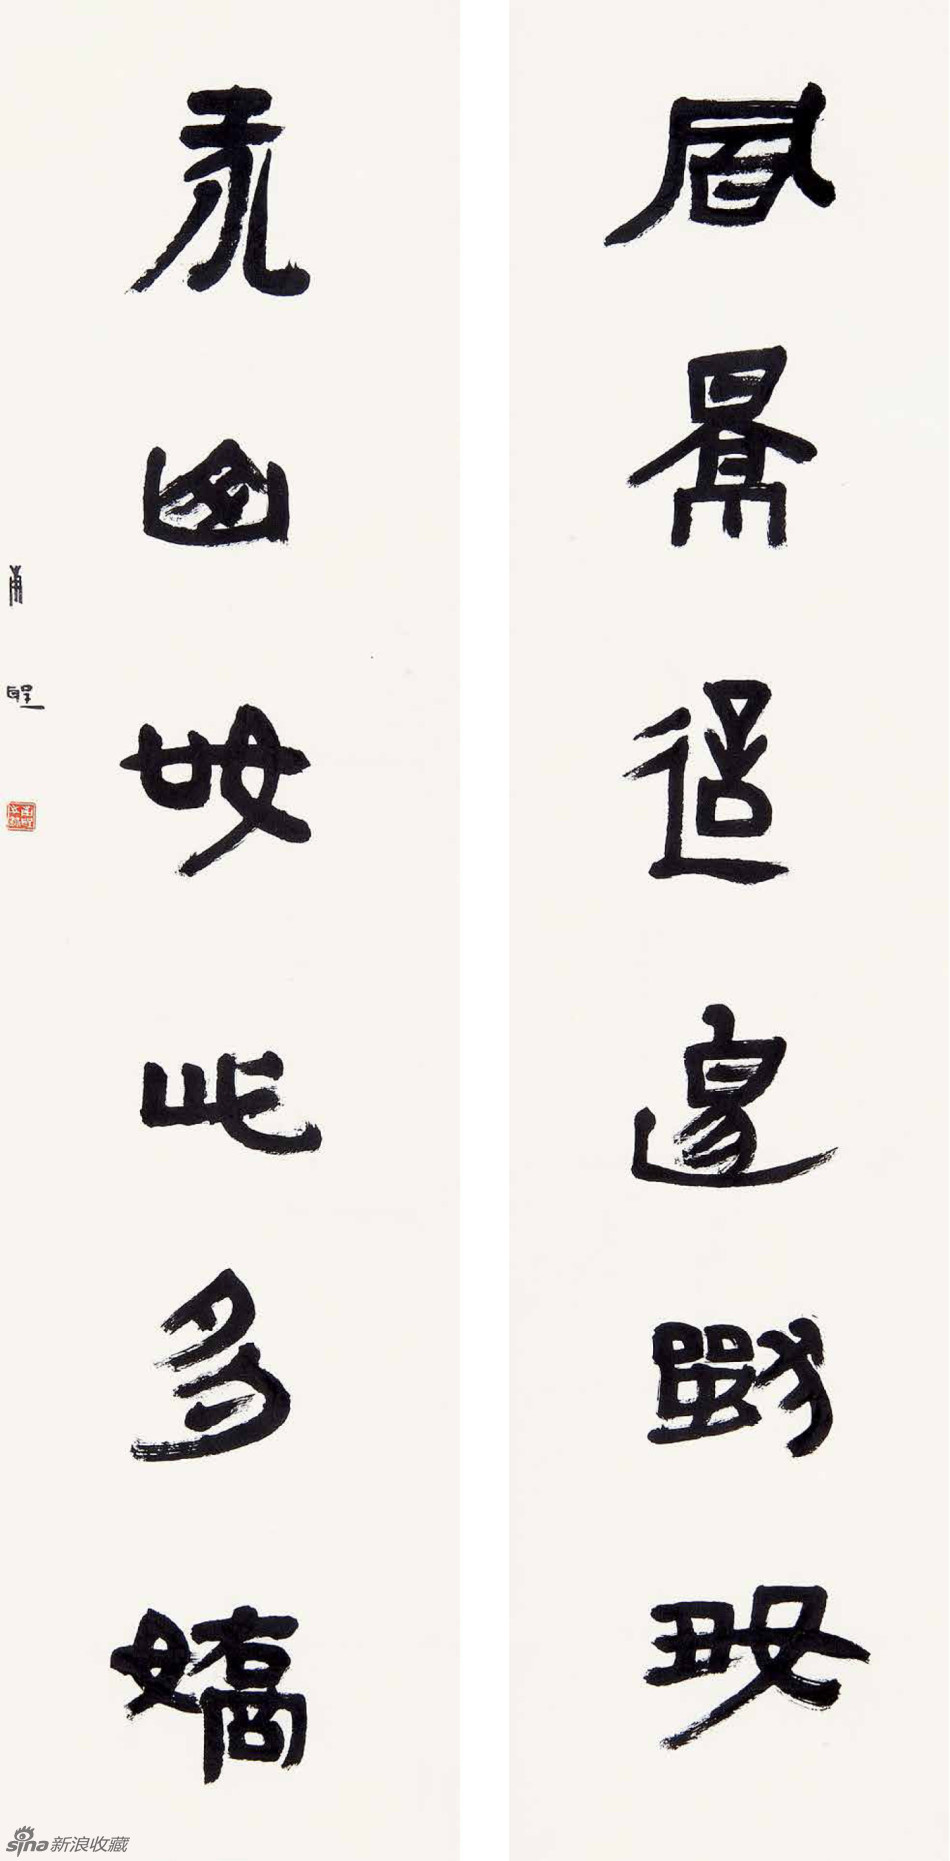 風景這邊獨好
江山如此多嬌
sina新浪收藏